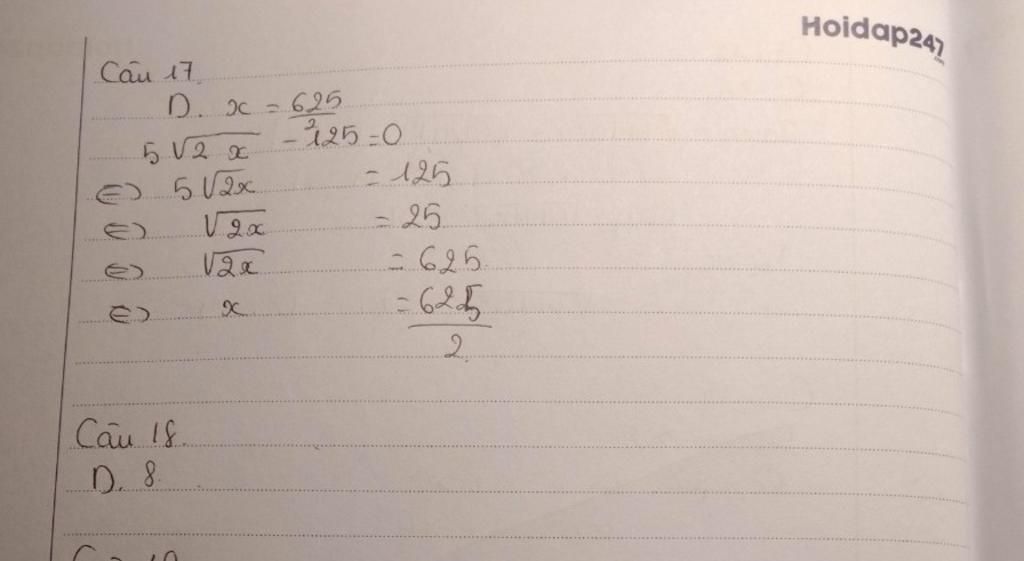 Hoidap247
Câu 17.
D. x = 625/2
5√2 x - 125 = 0
⇔ 5√2x = 125
⇔ √2x = 25
⇔ √2x = 625
⇔ x = 625/2
Câu 18.
D. 8